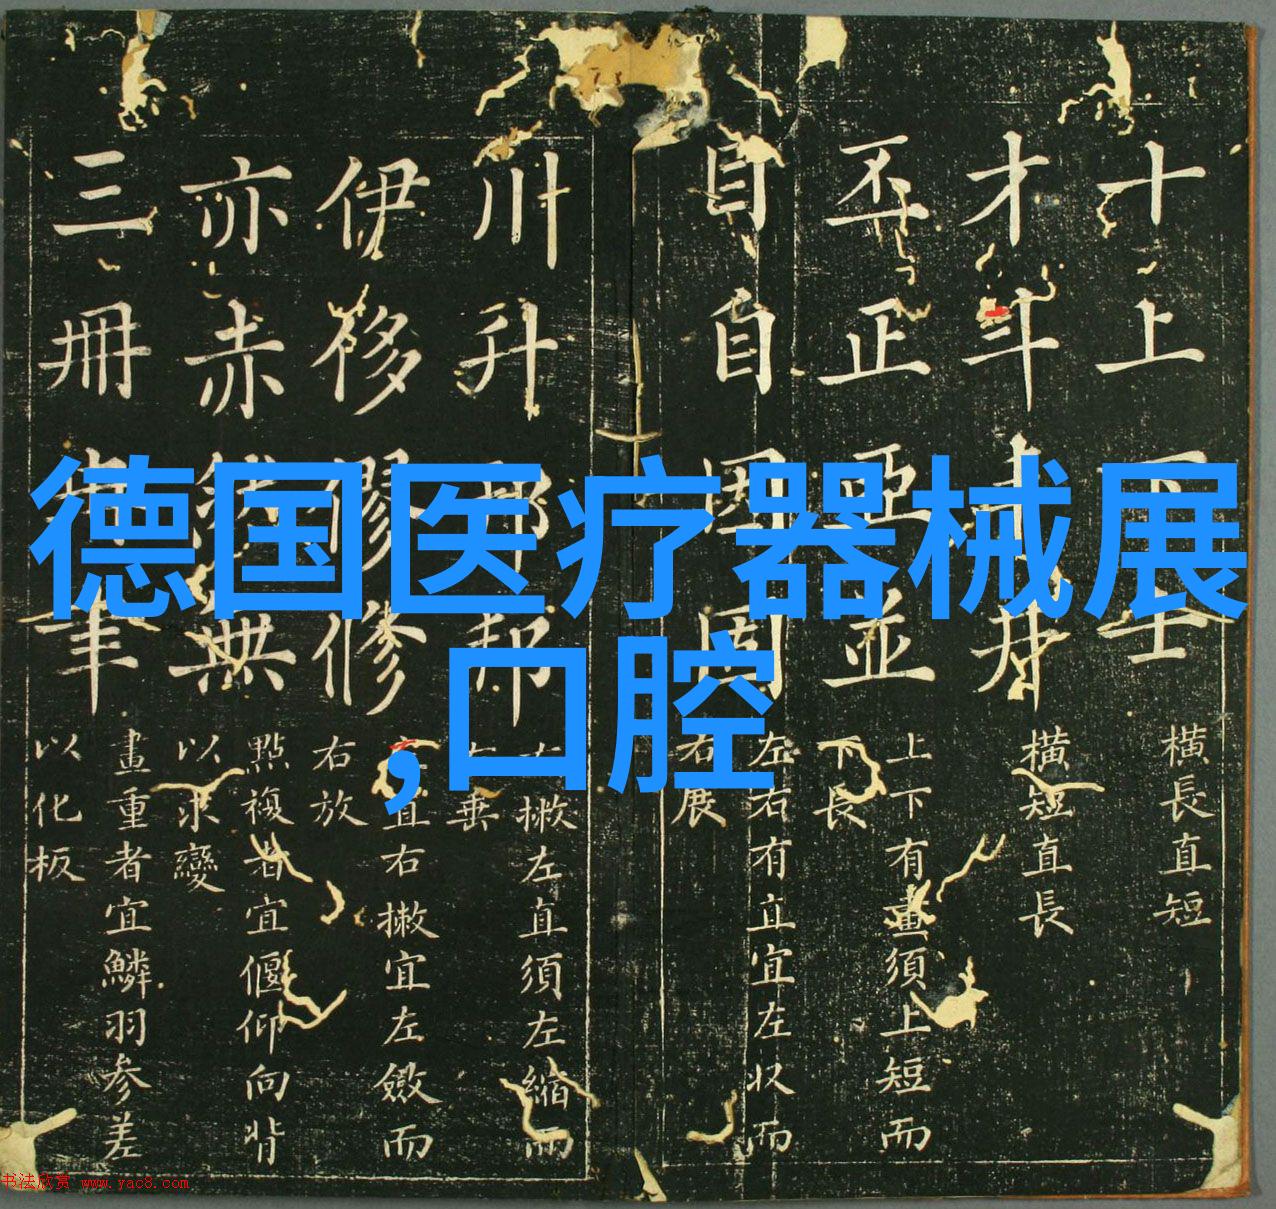 德国医疗器械展
,口腔
十上士
横長直短
才斗
横短直長
丕正亞並
上下有畫須上短而
下長
目自因固
左右有直宜左收而
右展
川升邦
撇左直須左縮而
垂
伊侈修
直右撇宜左斂而
右放
亦赤無
點複者宜偃仰向背
以求變
三冊
畫重者宜鱗羽参差
以化板
书法欣赏 www.yac8.com